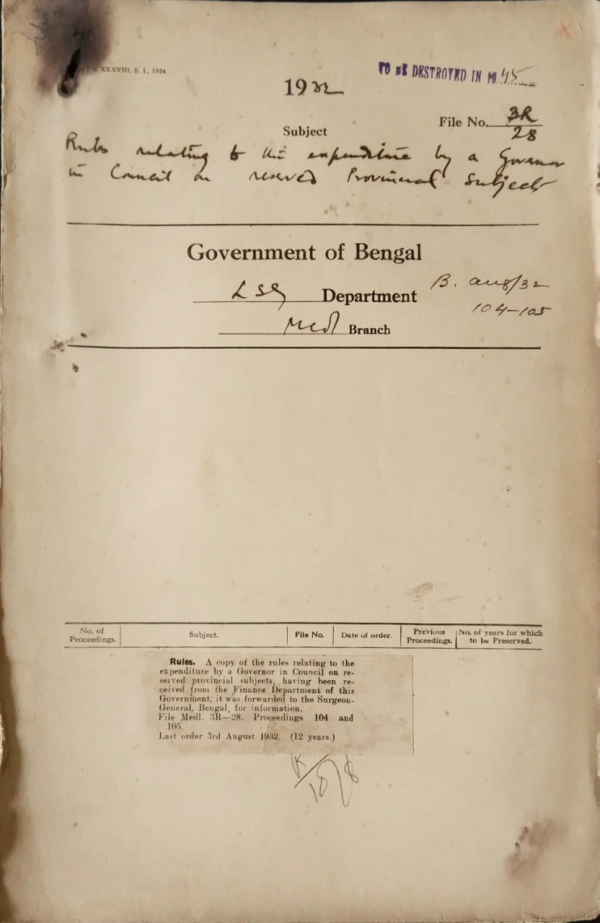 XXXVIII, B. I., 1924
TO BE DESTROYED IN 19 45
1932
File No. 3R/28
Subject
Rules relating to the expenditure by a Governor
in Council on reserved Provincial Subjects
Government of Bengal
LSG Department B. Aug/32
104-105
Medl Branch
No. of Proceedings. Subject. File No. Date of order. Previous Proceedings. No. of years for which to be Preserved.
Rules. A copy of the rules relating to the
expenditure by a Governor in Council on re-
served provincial subjects, having been re-
ceived from the Finance Department of this
Government, it was forwarded to the Surgeon-
General, Bengal, for information.
File Medl. 3R—28. Proceedings 104 and
105.
Last order 3rd August 1932. (12 years.)